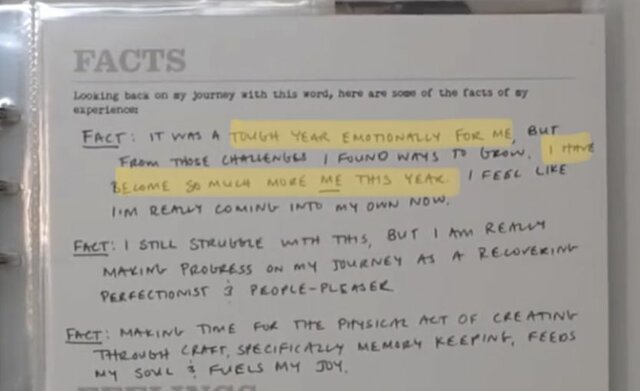 FACTS
Looking back on my journey with this word, here are some of the facts of my
experience:
FACT: IT WAS A TOUGH YEAR EMOTIONALLY FOR ME, BUT
FROM THOSE CHALLENGES I FOUND WAYS TO GROW. I HAVE
BECOME SO MUCH MORE ME THIS YEAR. I FEEL LIKE
I'M REALLY COMING INTO MY OWN NOW.
FACT: I STILL STRUGGLE WITH THIS, BUT I AM REALLY
MAKING PROGRESS ON MY JOURNEY AS A RECOVERING
PERFECTIONIST & PEOPLE-PLEASER
FACT: MAKING TIME FOR THE PHYSICAL ACT OF CREATING
THROUGH CRAFT, SPECIFICALLY MEMORY KEEPING, FEEDS
MY SOUL & FUELS MY JOY.
FEELINGS